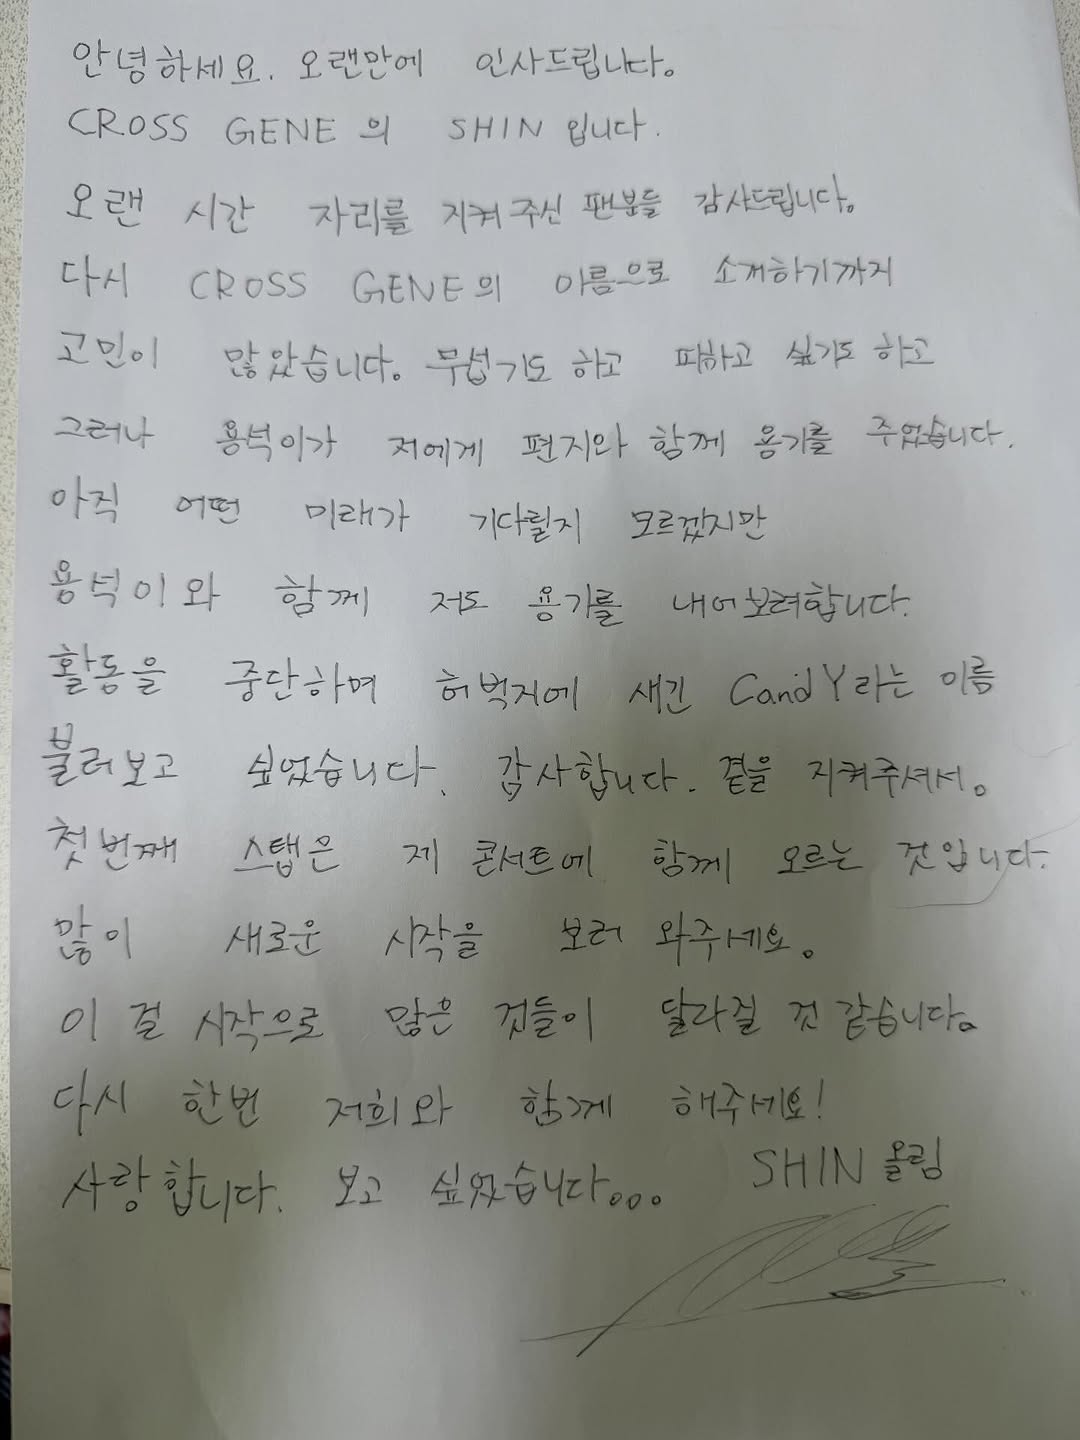 안녕하세요. 오랜만에 인사드립니다.
CROSS GENE의 SHIN입니다.
오랜 시간 자리를 지켜주신 팬분들 감사드립니다.
다시 CROSS GENE의 이름으로 소개하기까지
고민이 많았습니다. 무섭기도 하고 피하고 싶기도 하고
그러나 용석이가 저에게 편지와 함께 용기를 주었습니다.
아직 어떤 미래가 기다릴지 모르겠지만
용석이와 함께 저도 용기를 내어보려합니다.
활동을 중단하며 허벅지에 새긴 CandY라는 이름
불러보고 싶었습니다. 감사합니다. 곁을 지켜주셔서.
첫번째 스탭은 제 콘서트에 함께 오르는 것입니다.
많이 새로운 시작을 보러 와주세요.
이 걸 시작으로 많은 것들이 달라질 것 같습니다.
다시 한번 저희와 함께 해주세요!
사랑합니다. 보고 싶었습니다...
SHIN 올림